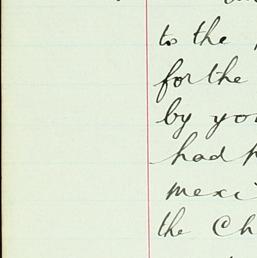 to the
for the
by you
had
mexi
the Ch